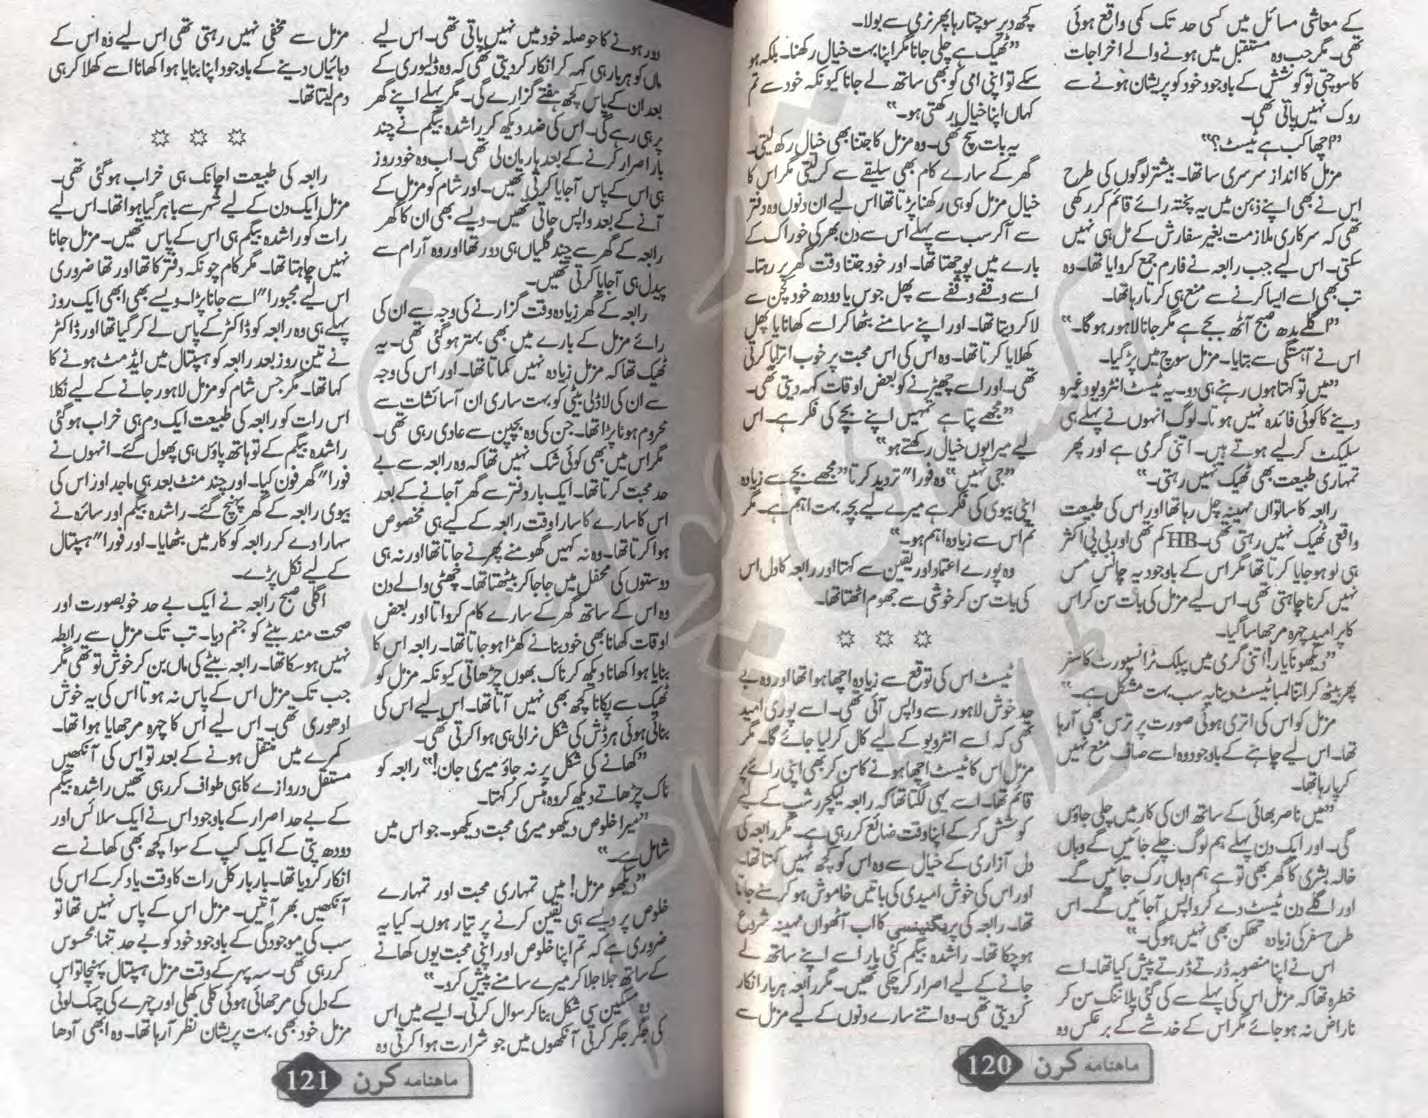 کے معاشی مسائل میں کسی حد تک کمی واقع ہوئی
تھی۔ مگر جب وہ مستقبل میں ہونے والے اخراجات
کا سوچتی تو کوشش کے باوجود خود کو پریشان ہونے سے
روک نہیں پاتی تھی۔
"اچھا کب ہے ٹیسٹ؟"
مزمل کا انداز سرسری سا تھا۔ بیشتر لوگوں کی طرح
اس نے بھی اپنے ذہن میں یہ پختہ رائے قائم کر رکھی
تھی کہ سرکاری ملازمت بغیر سفارش کے مل ہی نہیں
سکتی۔ اس لیے جب رابعہ نے فارم جمع کروایا تھا۔ وہ
تب بھی اسے ایسا کرنے سے منع ہی کرتا رہا تھا۔
"اگلے بدھ صبح آٹھ بجے ہے مگر جانا لاہور ہوگا۔"
اس نے آہستگی سے بتایا۔ مزمل سوچ میں پڑ گیا۔
"میں تو کہتا ہوں رہنے ہی دو۔ یہ ٹیسٹ انٹرویو وغیرہ
دینے کا کوئی فائدہ نہیں ہوتا۔ لوگ انہوں نے پہلے ہی
سلیکٹ کر لیے ہوتے ہیں۔ اتنی گرمی ہے اور پھر
تمہاری طبیعت بھی ٹھیک نہیں رہتی۔"
رابعہ کا ساتواں مہینہ چل رہا تھا اور اس کی طبیعت
واقعی ٹھیک نہیں رہتی تھی۔ HB کم تھی اور بی پی اکثر
ہی لو ہو جایا کرتا تھا مگر اس کے باوجود یہ چانس مس
نہیں کرنا چاہتی تھی۔ اس لیے مزمل کی بات سن کر اس
کا پر امید چہرہ مرجھا سا گیا۔
"دیکھو نا یار! اتنی گرمی میں پبلک ٹرانسپورٹ کا سفر
پھر بیٹھ کر اتنا لمبا ٹیسٹ دینا یہ سب بہت مشکل ہے۔"
مزمل کو اس کی اتری ہوئی صورت پر ترس بھی آ رہا
تھا۔ اس لیے چاہنے کے باوجود وہ اسے صاف منع نہیں
کر پا رہا تھا۔
"میں ناصر بھائی کے ساتھ ان کی کار میں چلی جاؤں
گی۔ اور ایک دن پہلے ہم لوگ چلے جائیں گے وہاں
خالہ بشریٰ کا گھر بھی تو ہے ہم وہاں رک جائیں گے۔
اور اگلے دن ٹیسٹ دے کر واپس آ جائیں گے۔ اس
طرح سفر کی زیادہ تھکن بھی نہیں ہوگی۔"
اس نے اپنا منصوبہ ڈرتے ڈرتے پیش کیا تھا۔ اسے
خطرہ تھا کہ مزمل اس کی پہلے سے کی گئی پلاننگ سن کر
ناراض نہ ہو جائے مگر اس کے خدشے کے برعکس وہ
کچھ دیر سوچتا رہا پھر نرمی سے بولا۔
"ٹھیک ہے چلی جانا مگر اپنا بہت خیال رکھنا۔ بلکہ ہو
سکے تو اپنی امی کو بھی ساتھ لے جانا کیونکہ خود سے تم
کہاں اپنا خیال رکھتی ہو۔"
یہ بات سچ تھی۔ وہ مزمل کا جتنا بھی خیال رکھ لیتی۔
گھر کے سارے کام بھی سلیقے سے کر لیتی مگر اس کا
خیال مزمل کو ہی رکھنا پڑتا تھا اس لیے ان دنوں وہ دفتر
سے آ کر سب سے پہلے اس سے دن بھر کی خوراک کے
بارے میں پوچھتا تھا۔ اور خود جتنا وقت گھر پر رہتا۔
اسے وقفے وقفے سے پھل جوس یا دودھ خود کچن سے
لا کر دیتا تھا۔ اور اپنے سامنے بٹھا کر اسے کھانا یا پھل
کھلایا کرتا تھا۔ وہ اس کی اس محبت پر خوب اترایا کرتی
تھی۔ اور اسے چھیڑنے کو بعض اوقات کہہ دیتی تھی۔
"مجھے پتا ہے تمہیں اپنے بچے کی فکر ہے۔ اس
لیے میرا یوں خیال رکھتے ہو"
"جی نہیں" وہ فورا" تردید کرتا "مجھے بچے سے زیادہ
اپنی بیوی کی فکر ہے میرے لیے بچہ بہت اہم ہے۔ مگر
تم اس سے زیادہ اہم ہو۔"
وہ پورے اعتماد اور یقین سے کہتا اور رابعہ کا دل اس
کی بات سن کر خوشی سے جھوم اٹھتا تھا۔
☼ ☼ ☼
ٹیسٹ اس کی توقع سے زیادہ اچھا ہوا تھا اور وہ بے
حد خوش لاہور سے واپس آئی تھی۔ اسے پوری امید
تھی کہ اسے انٹرویو کے لیے کال کر لیا جائے گا۔ مگر
مزمل اس کا ٹیسٹ اچھا ہونے کا سن کر بھی اپنی رائے پر
قائم تھا۔ اسے یہی لگتا تھا کہ رابعہ لیکچرر شپ کے لیے
کوشش کر کے اپنا وقت ضائع کر رہی ہے۔ مگر رابعہ کی
دل آزاری کے خیال سے وہ اس کو کچھ نہیں کہتا تھا۔
اور اس کی خوش امیدی کی باتیں خاموش ہو کر سنے جاتا
تھا۔ رابعہ کی پریگنینسی کا اب آٹھواں مہینہ شروع
ہو چکا تھا۔ راشدہ بیگم کئی بار اسے اپنے ساتھ لے
جانے کے لیے اصرار کر چکی تھیں۔ مگر رابعہ ہر بار انکار
کر دیتی تھی۔ وہ اتنے سارے دنوں کے لیے مزمل سے
ماہنامہ کرن 120
دور ہونے کا حوصلہ خود میں نہیں پاتی تھی۔ اس لیے
ماں کو ہر بار ہی کہہ کر انکار کر دیتی تھی کہ وہ ڈلیوری کے
بعد ان کے پاس کچھ ہفتے گزارے گی۔ مگر پہلے اپنے گھر
پر ہی رہے گی۔ اس کی ضد دیکھ کر راشدہ بیگم نے چند
بار اصرار کرنے کے بعد ہار مان لی تھی۔ اب وہ خود روز
ہی اس کے پاس آ جایا کرتی تھیں۔ اور شام کو مزمل کے
آنے کے بعد واپس جاتی تھیں۔ ویسے بھی ان کا گھر
رابعہ کے گھر سے چند گلیاں ہی دور تھا اور وہ آرام سے
پیدل ہی آ جایا کرتی تھیں۔
رابعہ کے گھر زیادہ وقت گزارنے کی وجہ سے ان کی
رائے مزمل کے بارے میں بھی بہتر ہو گئی تھی۔ یہ
ٹھیک تھا کہ مزمل زیادہ نہیں کماتا تھا۔ اور اس کی وجہ
سے ان کی لاڈلی بیٹی کو بہت ساری ان آسائشات سے
محروم ہونا پڑا تھا۔ جن کی وہ بچپن سے عادی رہی تھی۔
مگر اس میں بھی کوئی شک نہیں تھا کہ وہ رابعہ سے بے
حد محبت کرتا تھا۔ ایک بار دفتر سے گھر آ جانے کے بعد
اس کا سارے کا سارا وقت رابعہ کے لیے ہی مخصوص
ہوا کرتا تھا۔ وہ نہ کہیں گھومنے پھرنے جاتا تھا اور نہ ہی
دوستوں کی محفل میں جا جا کر بیٹھتا تھا۔ چھٹی والے دن
وہ اس کے ساتھ گھر کے سارے کام کرواتا اور بعض
اوقات کھانا بھی خود بنانے کھڑا ہو جاتا تھا۔ رابعہ اس کا
بنایا ہوا کھانا دیکھ کر ناک بھوں چڑھاتی کیونکہ مزمل کو
ٹھیک سے پکانا کچھ بھی نہیں آتا تھا۔ اس لیے اس کی
بنائی ہوئی ہر ڈش کی شکل نرالی ہی ہوا کرتی تھی۔
"کھانے کی شکل پر نہ جاؤ میری جان!" رابعہ کو
ناک چڑھاتے دیکھ کر وہ ہنس کر کہتا۔
"میرا خلوص دیکھو میری محبت دیکھو۔ جو اس میں
شامل ہے۔"
"دیکھو مزمل! میں تمہاری محبت اور تمہارے
خلوص پر ویسے ہی یقین کرنے پر تیار ہوں۔ کیا یہ
ضروری ہے کہ تم اپنا خلوص اور اپنی محبت یوں کھانے
کے ساتھ جلا جلا کر میرے سامنے پیش کرو۔"
وہ مسکین سی شکل بنا کر سوال کرتی۔ ایسے میں اس
کی جگر جگر کرتی آنکھوں میں جو شرارت ہوا کرتی وہ
مزمل سے مخفی نہیں رہتی تھی اس لیے وہ اس کے
دہائیاں دینے کے باوجود اپنا بنایا ہوا کھانا اسے کھلا کر ہی
دم لیتا تھا۔
☼ ☼ ☼
رابعہ کی طبیعت اچانک ہی خراب ہو گئی تھی۔
مزمل ایک دن کے لیے شہر سے باہر گیا ہوا تھا۔ اس لیے
رات کو راشدہ بیگم ہی اس کے پاس تھیں۔ مزمل جانا
نہیں چاہتا تھا۔ مگر کام چونکہ دفتر کا تھا اور تھا ضروری
اس لیے مجبورا" اسے جانا پڑا۔ ویسے بھی ابھی ایک روز
پہلے ہی وہ رابعہ کو ڈاکٹر کے پاس لے کر گیا تھا اور ڈاکٹر
نے تین روز بعد رابعہ کو ہسپتال میں ایڈمٹ ہونے کا
کہا تھا۔ مگر جس شام کو مزمل لاہور جانے کے لیے نکلا
اس رات کو رابعہ کی طبیعت ایک دم ہی خراب ہو گئی
راشدہ بیگم کے تو ہاتھ پاؤں ہی پھول گئے۔ انہوں نے
فورا" گھر فون کیا۔ اور چند منٹ بعد ہی ماجد اور اس کی
بیوی رابعہ کے گھر پہنچ گئے۔ راشدہ بیگم اور سائرہ نے
سہارا دے کر رابعہ کو کار میں بٹھایا۔ اور فورا" ہسپتال
کے لیے نکل پڑے۔
اگلی صبح رابعہ نے ایک بے حد خوبصورت اور
صحت مند بیٹے کو جنم دیا۔ تب تک مزمل سے رابطہ
نہیں ہو سکا تھا۔ رابعہ بیٹے کی ماں بن کر خوش تو تھی مگر
جب تک مزمل اس کے پاس نہ ہوتا اس کی یہ خوشی
ادھوری تھی۔ اس لیے اس کا چہرہ مرجھایا ہوا تھا۔
کمرے میں منتقل ہونے کے بعد تو اس کی آنکھیں
مستقل دروازے کا ہی طواف کر رہی تھیں راشدہ بیگم
کے بے حد اصرار کے باوجود اس نے ایک سلائس اور
دودھ پتی کے ایک کپ کے سوا کچھ بھی کھانے سے
انکار کر دیا تھا۔ بار بار کل رات کا وقت یاد کر کے اس کی
آنکھیں بھر آتیں۔ مزمل اس کے پاس نہیں تھا تو
سب کی موجودگی کے باوجود خود کو بے حد تنہا محسوس
کر رہی تھی۔ سہ پہر کے وقت مزمل ہسپتال پہنچا تو اس
کے دل کی مرجھائی ہوئی کلی کھلی اور چہرے کی چمک لوٹی
مزمل خود بھی بہت پریشان نظر آ رہا تھا۔ وہ ابھی آدھا
ماہنامہ کرن 121